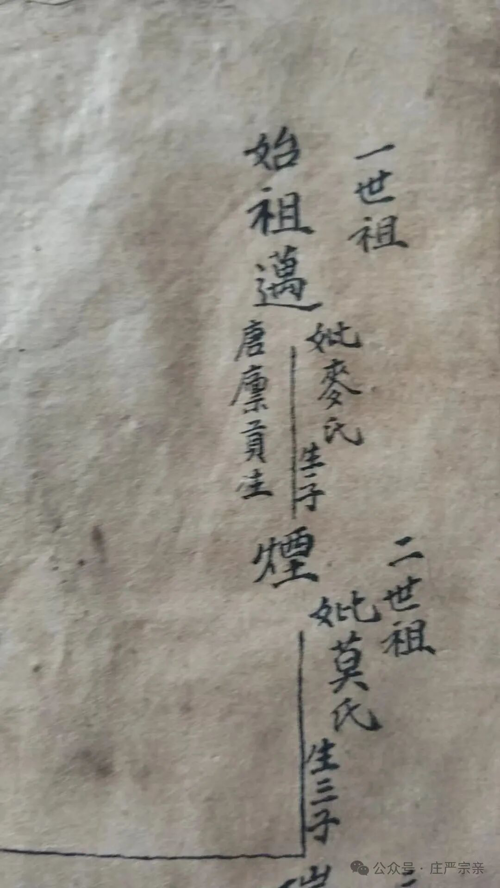 一世祖
始祖邁
妣麥氏
生子
唐廩貢生
二世祖
煙
妣莫氏
生三子
公众号·庄严宗亲